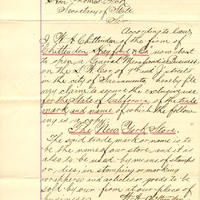 Hon Thomas Beck
Secretary of State
Sir
According to Law
I W. H. Chittenden of the firm of
Chittenden, & Co. now about
to open a General Merchandise Business
on the S. W. Cor of and J streets
in the City of Sacramento, hereby file
my claim to secure the exclusive use
for the State of California of the trade
mark and name of which the follow-
ing is a copy
"The New York Store."
The said trade mark or name is to
be the name of our store, and it is
also to be used by means of stamps
or dies, in stamping or marking
wrappers and articles or goods to be
sold by our firm at our place of
business.